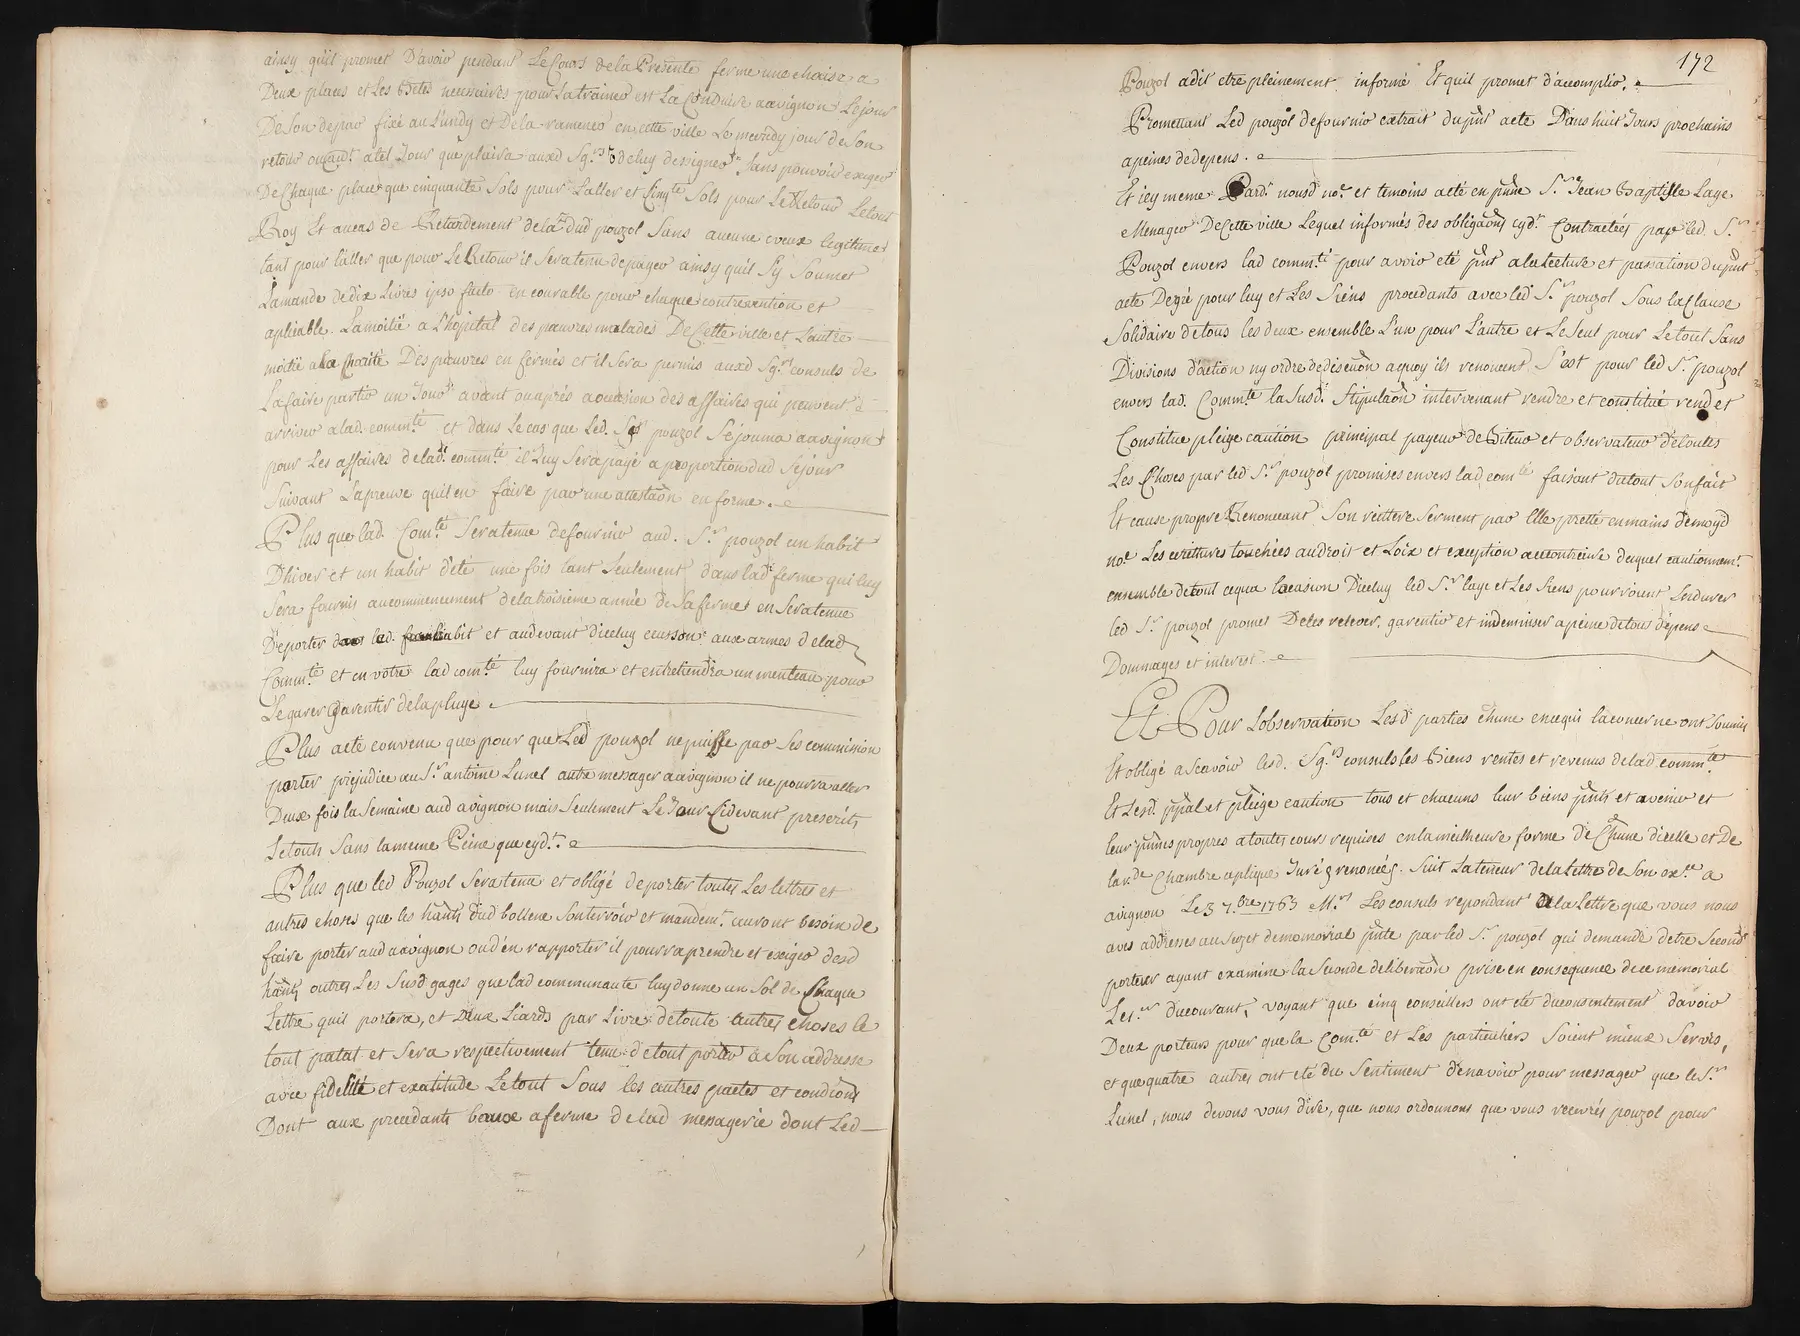 ainsy quil promet D'avoir pendant Le Cours de la Presente ferme une chaise a
Deux places et Les Betes necessaires pour La trainer et La Conduire a avignon Le jour
De Son depar fixé au Lundy et De la ramener en cette ville Le mecredy jour de Son
retour ou aut. a tel Jour que plaira auxd Sgrs de luy dessigner Sans pouvoir exiger
De Chaque place que cinquante Sols pour L'aller et Cinqte Sols pour Le Retour Le tout
Roy Et au cas de Retardement de la dud pouzol Sans aucune legitime
tant pour L'aller que pour Le Retour il Sera tenu de payer ainsy quil Sy Soumet
L'amande de dix Livres ipso facto encourable pour chaque contrevention et
apliable La moitie a L'hopital des pauvres malades De Cette ville et L'autre
moitie a La Charité Des pauvres enfermés et il Sera permis auxd Sgrs consuls de
La faire partir un Jour avant ou aprés a occasion des affaires qui peuvent
arriver a lad. commté et dans Le cas que Led. Sr pouzol Sejourna a avignon
pour Les affaires de lad. commté il Luy Sera payé a proportion dud Sejour
Suivant La preuve quil en faire par une attestaon en forme.
Plus que lad. Comté Sera tenue de fournir aud. Sr pouzol un habit
D'hiver et un habit d'été une fois tant Seulement dans lad ferme qui luy
Sera fournis au commencement de la troisieme année De Sa ferme en Sera tenue
De porter led. habit et au devant d'iceluy ecusson aux armes de lad
Commté et en votre lad comté luy fournira et entretiendra un menteau pour
Le garentir de la pluye
Plus acté convenu que pour que Led pouzol ne puisse par Ses commission
porter prejudice au Sr antoine Lunel autre messager a avignon il ne pourra aller
Deux fois la Semaine aud avignon mais Seulement Le Jour Cidevant prescrits
Le tout Sans la meme Peine que cydt.
Plus que led Pouzol Sera tenu et obligé de porter toutes Les lettres et
autres choses que les hants dud bollene Son terroir et mandemt. auront besoin de
faire porter aud avignon ou d'en rapporter il pourra prendre et exiger desd
hants outres Les Susd gages que lad communaute luy donne un Sol de Chaque
Lettre quil portera, et Deux Liards par Livre de toute autres choses le
tout patat et Sera respectivement tenu de tout porter a Son addresse
avec fidelité et exatitude Le tout Sous les autres pactes et condions
Dont aux precedants baux a ferme de lad messagerie dont Led
172
Pouzol a dit etre pleinement informé Et quil promet d'acomplir.
Promettant Led pouzol de fournir extrait du pnt acte Dans huit Jours prochains
a peines de depens.
Et icy meme Pardt nousd nore et temoins acté en pnne Sr Jean Baptiste Laye
Menager De Cette ville Lequel informés des obligaons cydt Contractées par led. Sr
Pouzol envers lad commté pour avoir eté pnt a la lecture et passation du pnt
acte De gré pour luy et Les Siens procedants avec led Sr pouzol Sous la Clause
Solidaire de tous les deux ensemble L'un pour L'autre et Le Seul pour Le tout Sans
Divisions d'action ny ordre de discution a quoy ils renoncent S'est pour led Sr pouzol
envers lad. Commté la Susd. Stipulaon intervenant rendre et constitué rend et
Constitue pleige caution principal payeur debiteur et observateur de toutes
Les Choses par led Sr pouzol promises envers lad comté faisant du tout Son fait
Et cause propre Renoncant Son Serment par Elle pretté en mains de moyd
nore Les ecrittures touchées au droit et Loix et exception a contraire duquel cautionnemt.
ensemble de tout ce qua L'ocasion D'iceluy led Sr laye et Les Siens pourroient Endurer
led Sr pouzol promet De les relever, garentir et indemniser a peine de tous depens
Dommages et interest.
Et Pour L'observation Lesd parties chune en ce qui la concerne ont Soumis
Et obligé a Scavoir Lesd. Sgrs consuls les Biens rentes et revenus de lad commté
Et Lesd. ppal et pleige caution tous et chacuns leur biens pnts et avenir et
leur pnnes propres a toutes cours requises en la meilheure forme de Chune d'icelle et De
la rde Chambre aplique Juré renoncé. Suit La teneur de la Lettre de Son exce a
avignon Le 3 7bre 1763 Mrs Les consuls repondant a la Lettre que vous nous
aves addressés au Sujet de momorial pnté par led Sr pouzol qui demande d'etre Second
porteur ayant examiné la Seconde deliberaon prise en consequence de ce memorial
Le 1er du courant, voyant que cinq conseillers ont eté du consentement d'avoir
Deux porteurs pour que la Comté et Les particuliers Soient mieux Servis,
et que quatre autres ont eté du Sentiment de n'avoir pour messager que le Sr
Lunel, nous devons vous dire, que nous ordonnons que vous recevrés pouzol pour